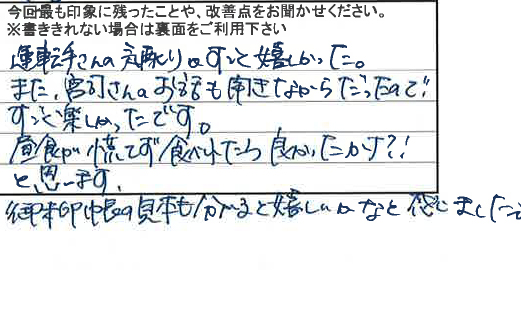 今回最も印象に残ったことや、改善点をお聞かせください。
※書ききれない場合は裏面をご利用下さい
運転手さんの気配りがすごく嬉しかった。
また、宮司さんのお話も聞きながらだったので!
すごく楽しかったです。
昼食が慌てず食べれたら良かったかナ?!
と思います。
御朱印帳の見本も分かると嬉しいかなと感じました